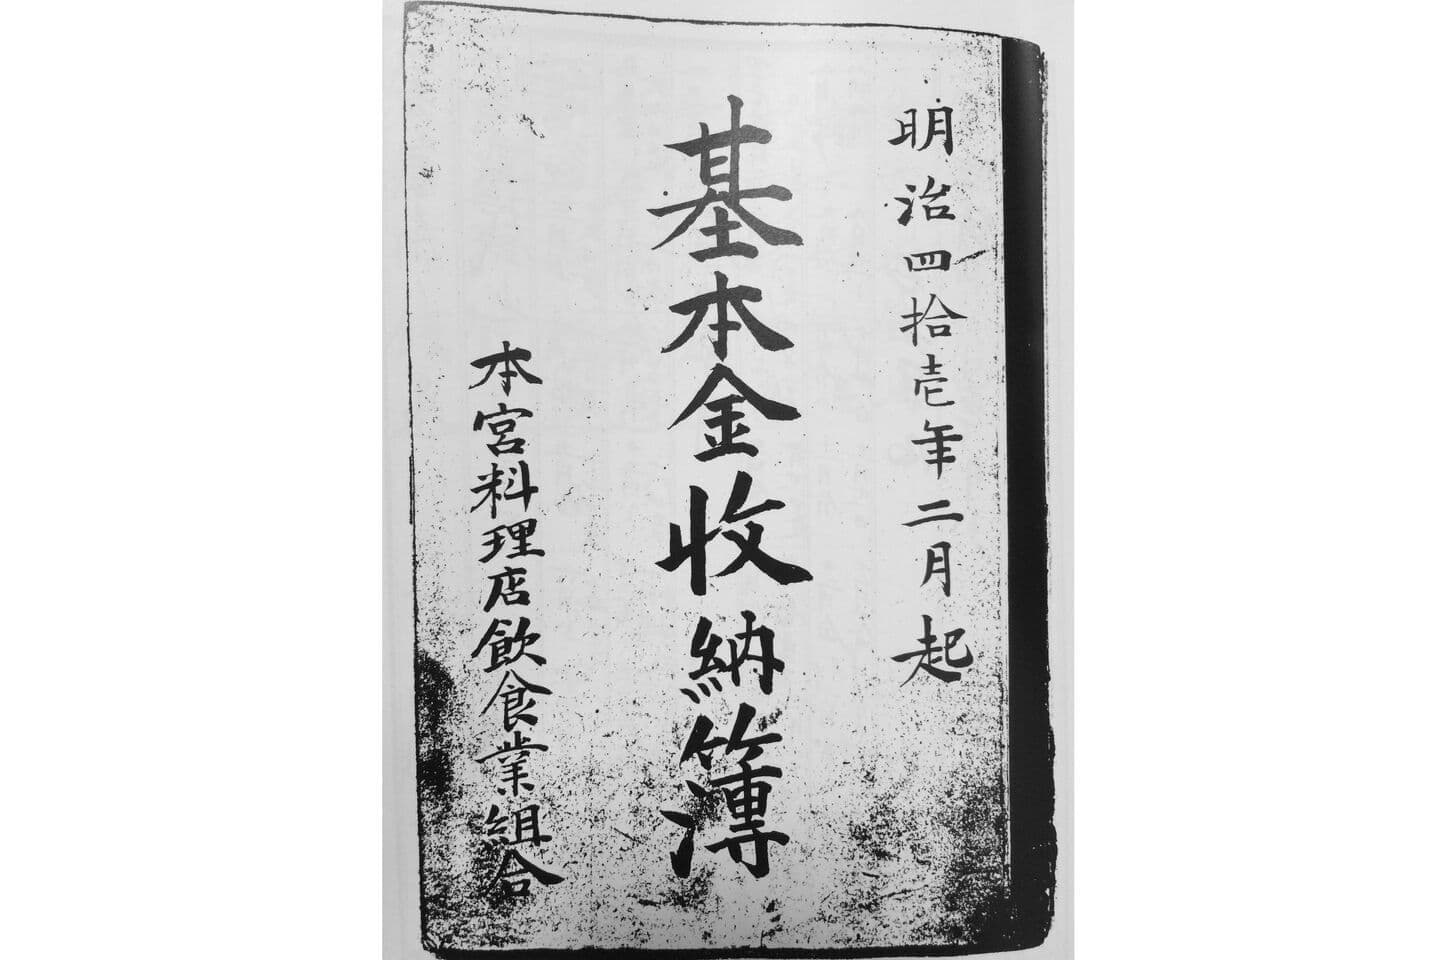 明治四拾壱年二月起
基本金收納簿
本宮料理店飲食業組合